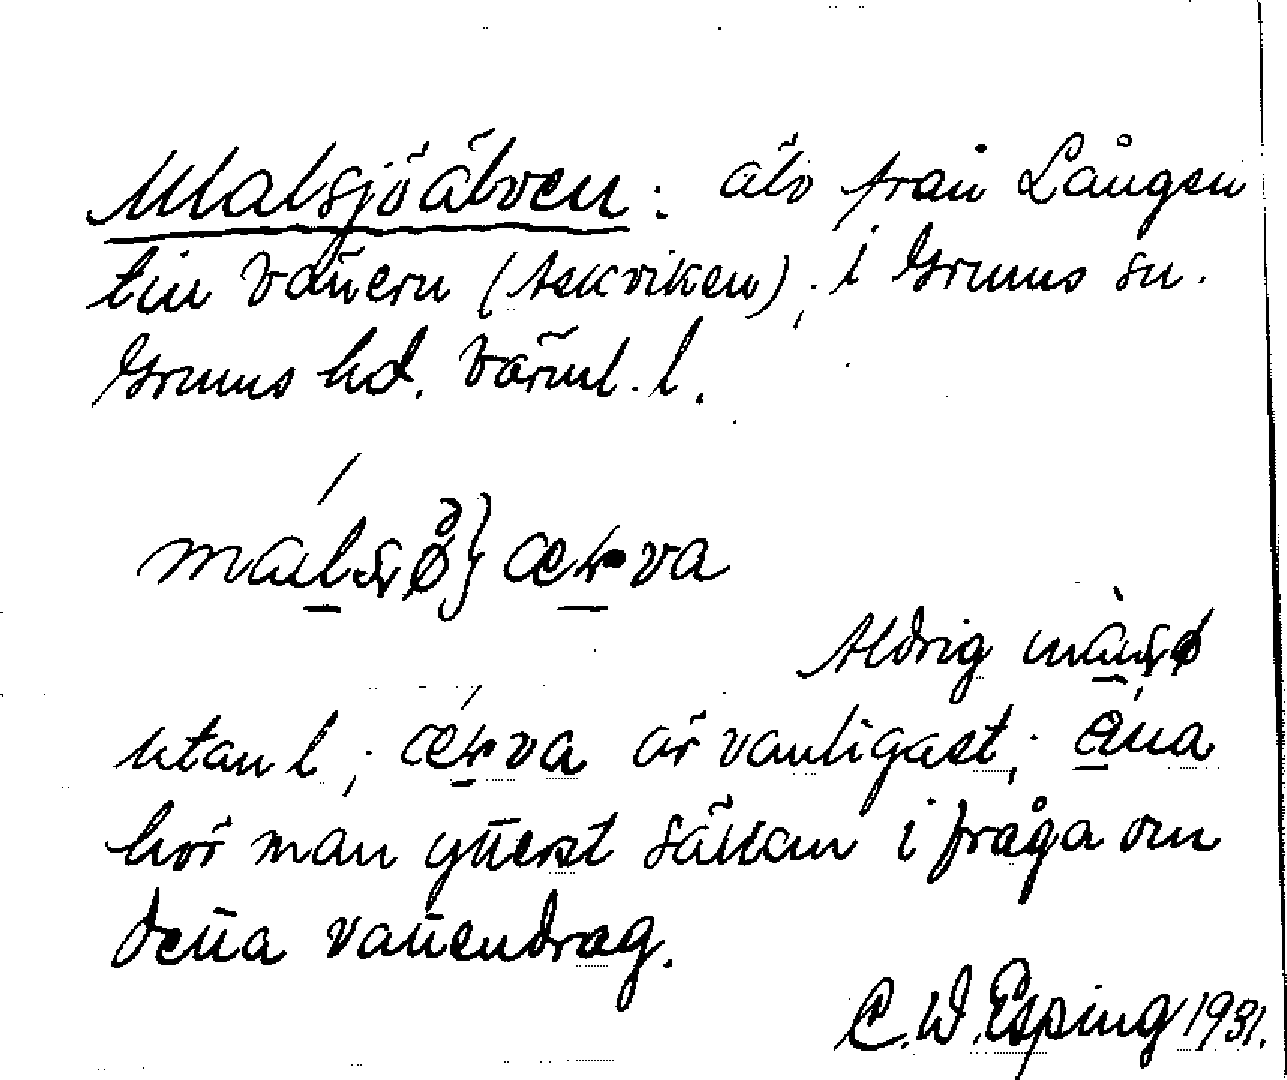 Malsjöälven: älv från Lången
till Vänern (Åskviken); i Grums sn.
Grums hd. Värml. l.
Aldrig
utan l; är vanligast;
hör man ytterst sällan i fråga om
detta vattendrag.
C. W. Esping 1931.